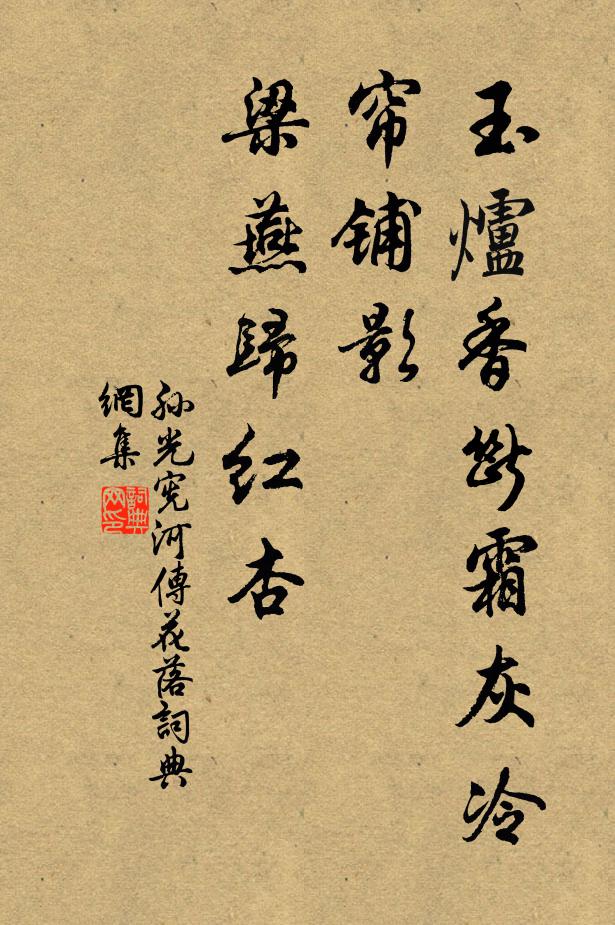 玉爐香斷霜灰冷
帘铺影
梁燕歸红杏
孫光宪河傳花落詞典
網集
詞典
网印